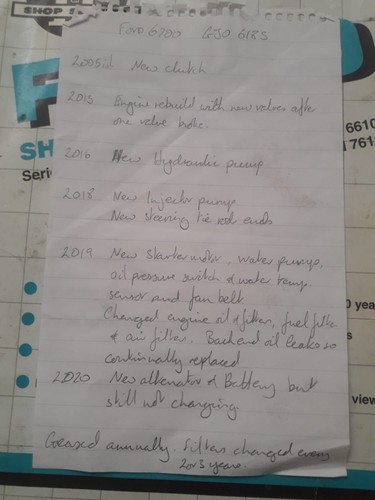 SHOP
Ford 6700 GJO 618S
2005ish New clutch
2015 Engine rebuild with new valves after
one valve broke.
2016 New Hydraulic pump
2018 New Injector pump
New steering tie rod ends
2019 New starter motor. Water pump.
oil pressure switch & water temp.
sensor and fan belt
Changed engine oil & filters, fuel filter
& air filter. Back end oil leaks so
continually replaced
2020 New alternator & Battery but
still not charging.
Greased annually. Filters changed every
2 or 3 years.
6610
7610
SH
Seri
0 year
view